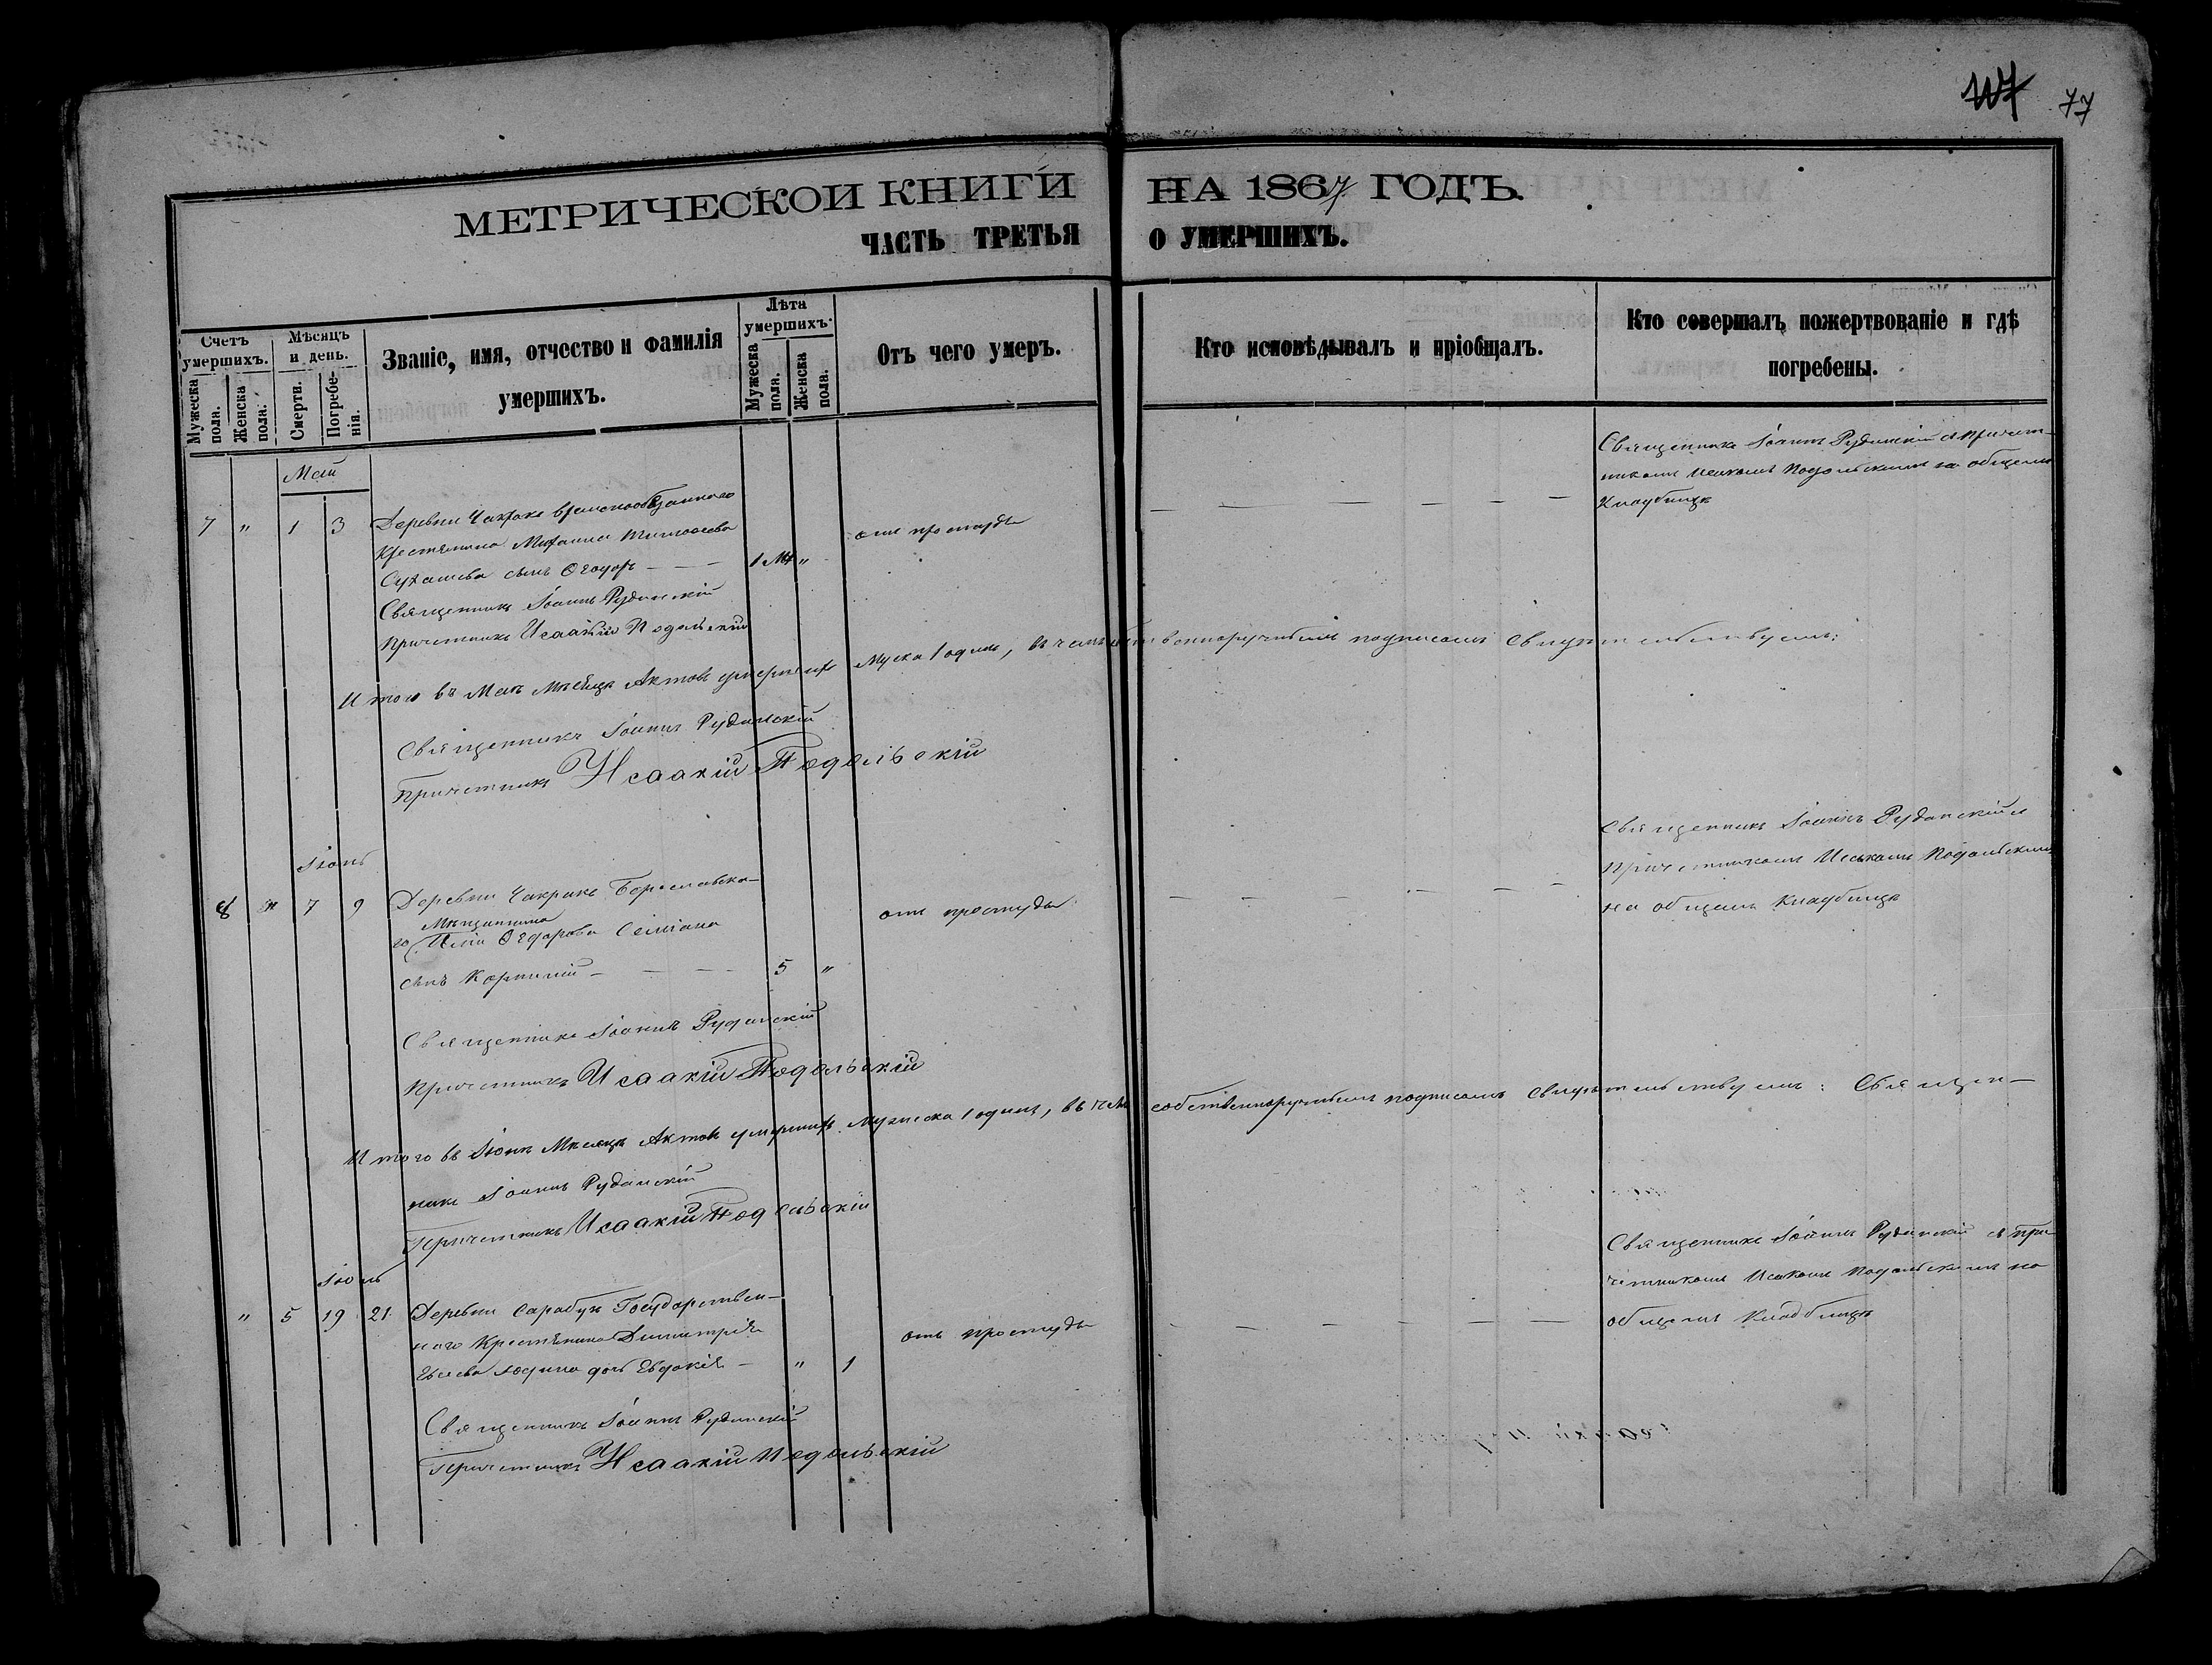 77
МЕТРИЧЕСКОЙ КНИГИ НА 1867 ГОДЪ.
ЧАСТЬ ТРЕТЬЯ О УМЕРШИХЪ.
Счетъ умершихъ.
Мужеска пола.
Женска пола.
Мѣсяцъ и день.
Смерти.
Погребенія.
Званіе, имя, отчество и фамилія
умершихъ.
Лѣта умершихъ.
Мужеска пола.
Женска пола.
Отъ чего умеръ.
Кто исповѣдывалъ и пріобщалъ.
Кто совершалъ пожертвованіе и гдѣ
погребены.
Май
7 " 1 3 Деревни Чакракъ временнообязаннаго
Крестянина Михаила Тимофеева
сынъ Ѳеодоръ — — 1 "
отъ простуды
Священникъ Іоаннъ Руданскій съ причет-
никомъ Исакомъ Подольскимъ на общемъ
Кладбищѣ
Священникъ Іоаннъ Руданскій
Причетникъ Исаакій Подольскій
Итого въ Маѣ Мѣсяцѣ Актовъ умершихъ Муска 1 одинъ, въ чемъ собственноручнымъ подписомъ свидѣтельствуемъ:
Священникъ Іоаннъ Руданскій
Причетникъ Исаакій Подольскій
Іюнь
8 " 7 9 Деревни Чакракъ Бориславска-
Мѣщанина
го Иліи Ѳедорова Селіхана
сынъ Корнилій — — — 5 "
отъ простуды
Священникъ Іоаннъ Руданскій съ
Причетникомъ Исакомъ Подольскимъ
на общемъ Кладбищѣ
Священникъ Іоаннъ Руданскій
Причетникъ Исаакій Подольскій
Итого въ Іюнѣ Мѣсяцѣ Актовъ умершихъ Мужеска 1 одинъ, въ чемъ собственноручнымъ подписомъ свидѣтельствуемъ: Священ-
никъ Іоаннъ Руданскій
Причетникъ Исаакій Подольскій
Іюль
" 5 19 21 Деревни Сарабузъ Государствен-
наго Крестянина Димитрія
дочь Евдокія — " 1
отъ простуды
Священникъ Іоаннъ Руданскій съ при-
четникомъ Исакомъ Подольскимъ на
общемъ Кладбищѣ
Священникъ Іоаннъ Руданскій
Причетникъ Исаакій Подольскій